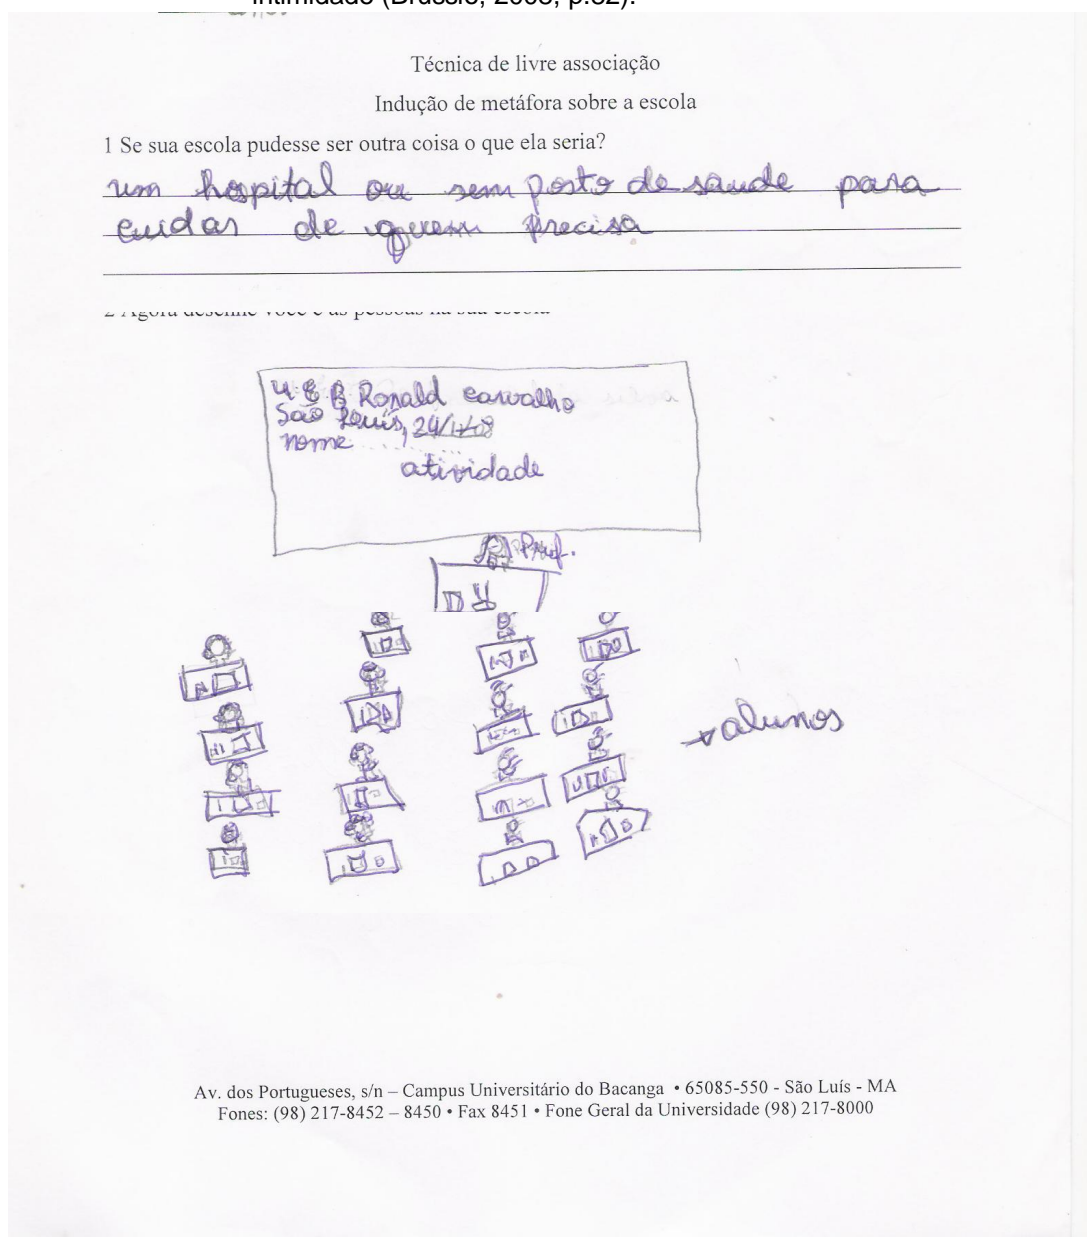 intimidade (Brussio, 2008, p.82).
Técnica de livre associação
Indução de metáfora sobre a escola
1 Se sua escola pudesse ser outra coisa o que ela seria?
um hospital ou sem posto de saude para
cuidar de quem precisa
2 Agora desenhe você e as pessoas na sua escola
U E B Ronald carvalho
São Luis, 24/
nome
atividade
Prof.
alunos
Av. dos Portugueses, s/n – Campus Universitário do Bacanga • 65085-550 - São Luís - MA
Fones: (98) 217-8452 – 8450 • Fax 8451 • Fone Geral da Universidade (98) 217-8000